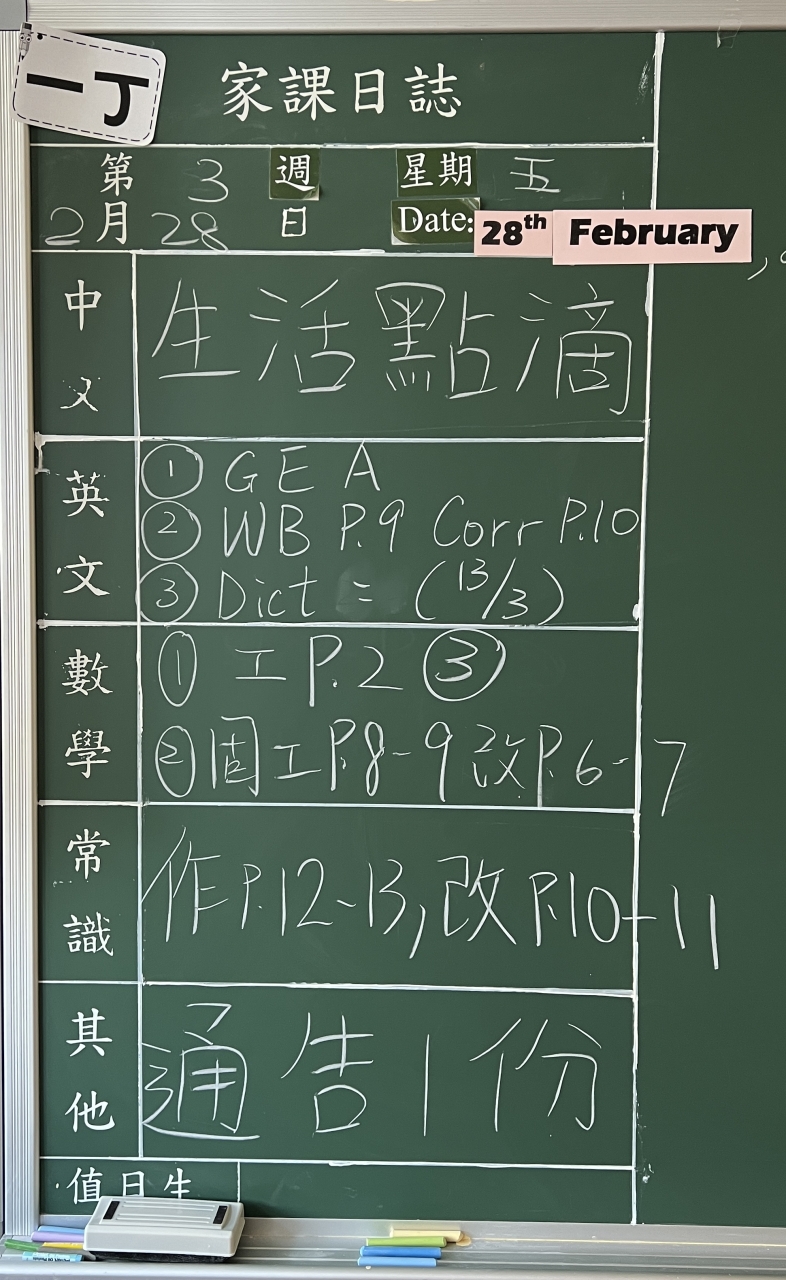 一丁
家課日誌
第 3 週 星期 五
2月 28 日 Date: 28th February
中文 生活點滴
英文 ① GE A
② WB P.9 Corr P.10
③ Dict = (13/3)
數學 ① 工 P.2 ③
② 固工P.8-9 改P.6-7
常識 作P.12-13, 改P.10-11
其他 通告1份
值日生